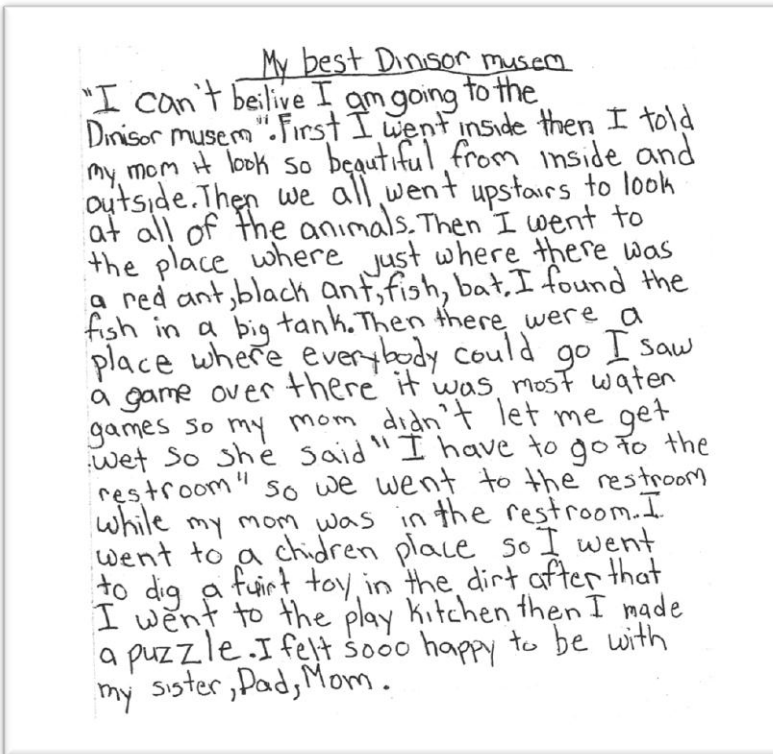 My best Dinisor musem
"I can't beilive I am going to the
Dinisor musem". First I went inside then I told
my mom it look so beautiful from inside and
outside. Then we all went upstairs to look
at all of the animals. Then I went to
the place where just where there was
a red ant, black ant, fish, bat. I found the
fish in a big tank. Then there were a
place where everybody could go I saw
a game over there it was most water
games so my mom didn't let me get
wet so she said "I have to go to the
restroom" so we went to the restroom
while my mom was in the restroom. I
went to a chidren place so I went
to dig a toy in the dirt after that
I went to the play kitchen then I made
a puzzle. I felt sooo happy to be with
my sister, Dad, Mom.